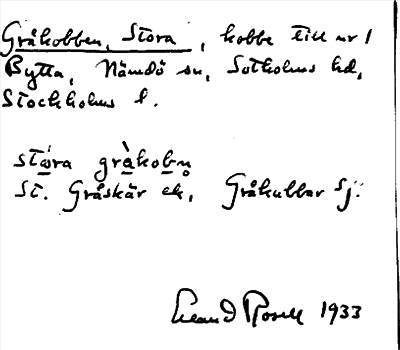 Gråkobben, Stora, kobbe till nr 1
Bytta, Nämdö sn, Sotholms hd,
Stockholms l.
stὼra gråkobn̥
St. Gråskär ek, Gråkubbar Sj.
1933